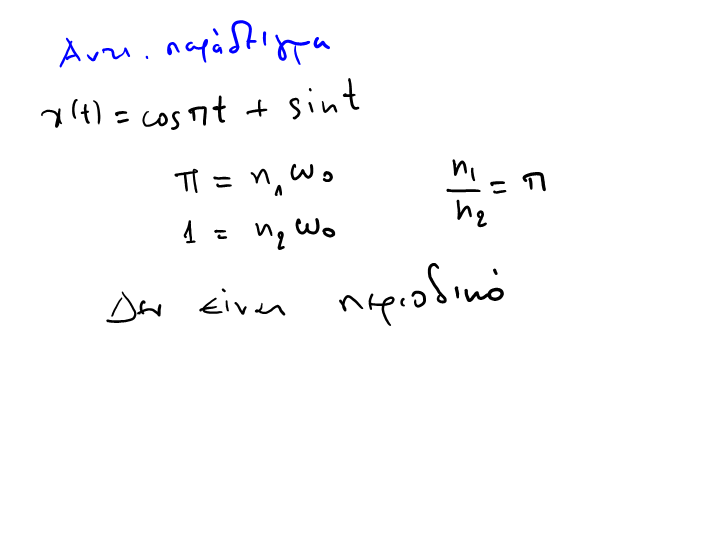 Αντι. παράδειγμα
x(t) = cos πt + sin t
π = n₁ ω₀
n₁/n₂ = π
1 = n₂ ω₀
Δεν είναι περιοδικό